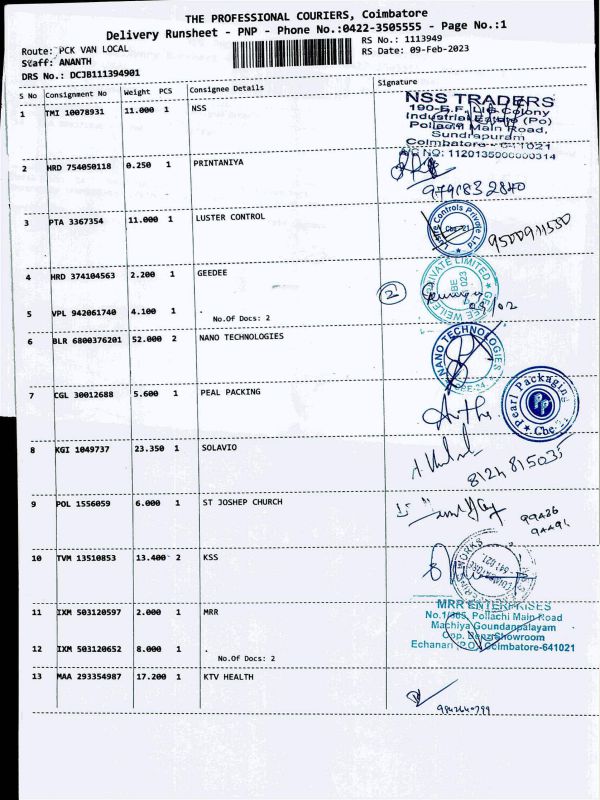 THE PROFESSIONAL COURIERS, Coimbatore
Delivery Runsheet - PNP - Phone No.:0422-3505555 - Page No.:1
Route: PCK VAN LOCAL RS No.: 1113949
Staff: ANANTH RS Date: 09-Feb-2023
DRS No.: DCJB111394901
S No Consignment No Weight PCS Consignee Details Signature
1 TMI 10078931 11.000 1 NSS
NSS TRADERS
Industrial Estate (Po)
Pollachi Main Road,
Sundrapuram
Coimbatore - 641021
2 HRD 754050118 0.250 1 PRINTANIYA
9791832840
3 PTA 3367354 11.000 1 LUSTER CONTROL
Controls Private Ltd
4 HRD 374104563 2.200 1 GEEDEE
PRIVATE LIMITED
2
5 VPL 942061740 4.100 1 .
No.Of Docs: 2
6 BLR 6800376201 52.000 2 NANO TECHNOLOGIES
NANO TECHNOLOGIES
7 CGL 30012688 5.600 1 PEAL PACKING
Pearl Packaging
PP
8 KGI 1049737 23.350 1 SOLAVIO
8124815035
9 POL 1556059 6.000 1 ST JOSHEP CHURCH
10 TVM 13510853 13.400 2 KSS
11 IXM 503120597 2.000 1 MRR
MRR ENTERPRISES
Pollachi Main Road
Machiya Goundanpalayam
Opp. Benz Showroom
Echanari (P.O) Coimbatore-641021
12 IXM 503120652 8.000 1 .
No.Of Docs: 2
13 MAA 293354987 17.200 1 KTV HEALTH